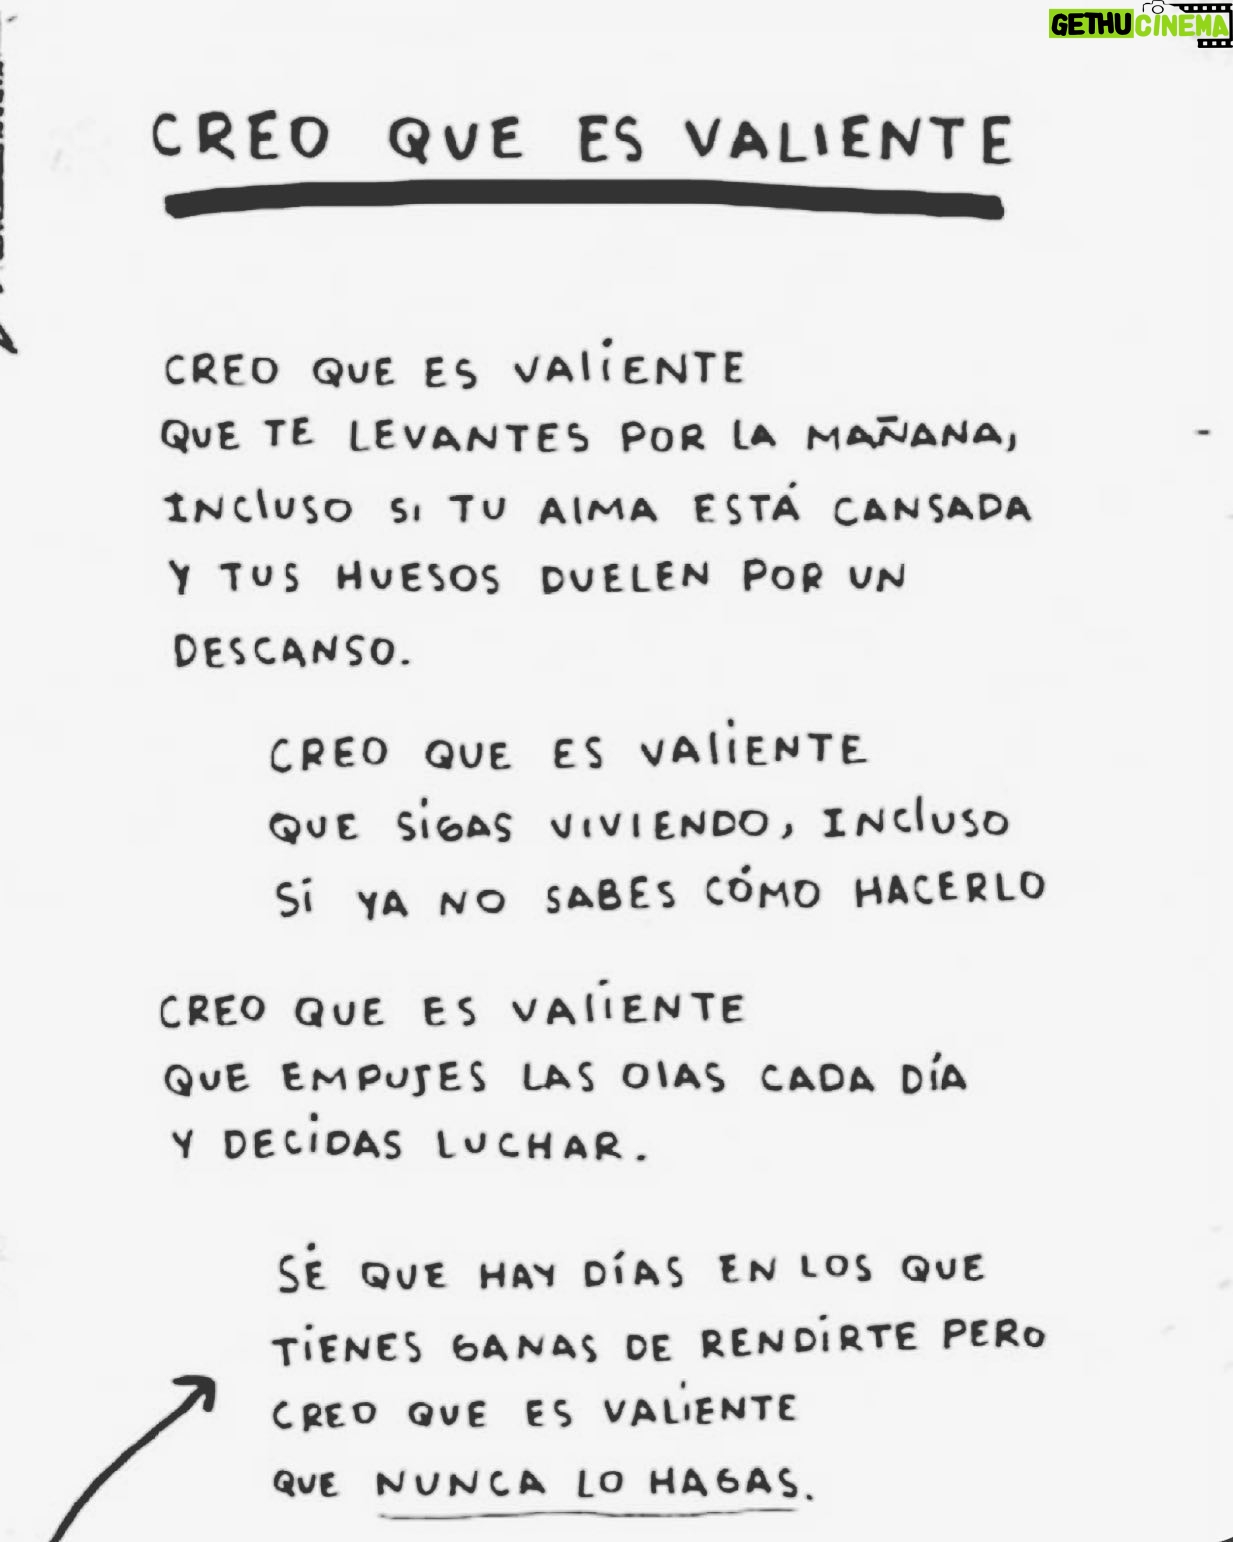 GETHUCINEMA
CREO QUE ES VALIENTE
CREO QUE ES VALIENTE
QUE TE LEVANTES POR LA MAÑANA,
INCLUSO SI TU ALMA ESTÁ CANSADA
Y TUS HUESOS DUELEN POR UN
DESCANSO.
CREO QUE ES VALIENTE
QUE SIGAS VIVIENDO, INCLUSO
SI YA NO SABES CÓMO HACERLO
CREO QUE ES VALIENTE
QUE EMPUJES LAS OLAS CADA DÍA
Y DECIDAS LUCHAR.
SÉ QUE HAY DÍAS EN LOS QUE
TIENES GANAS DE RENDIRTE PERO
CREO QUE ES VALIENTE
QUE NUNCA LO HAGAS.